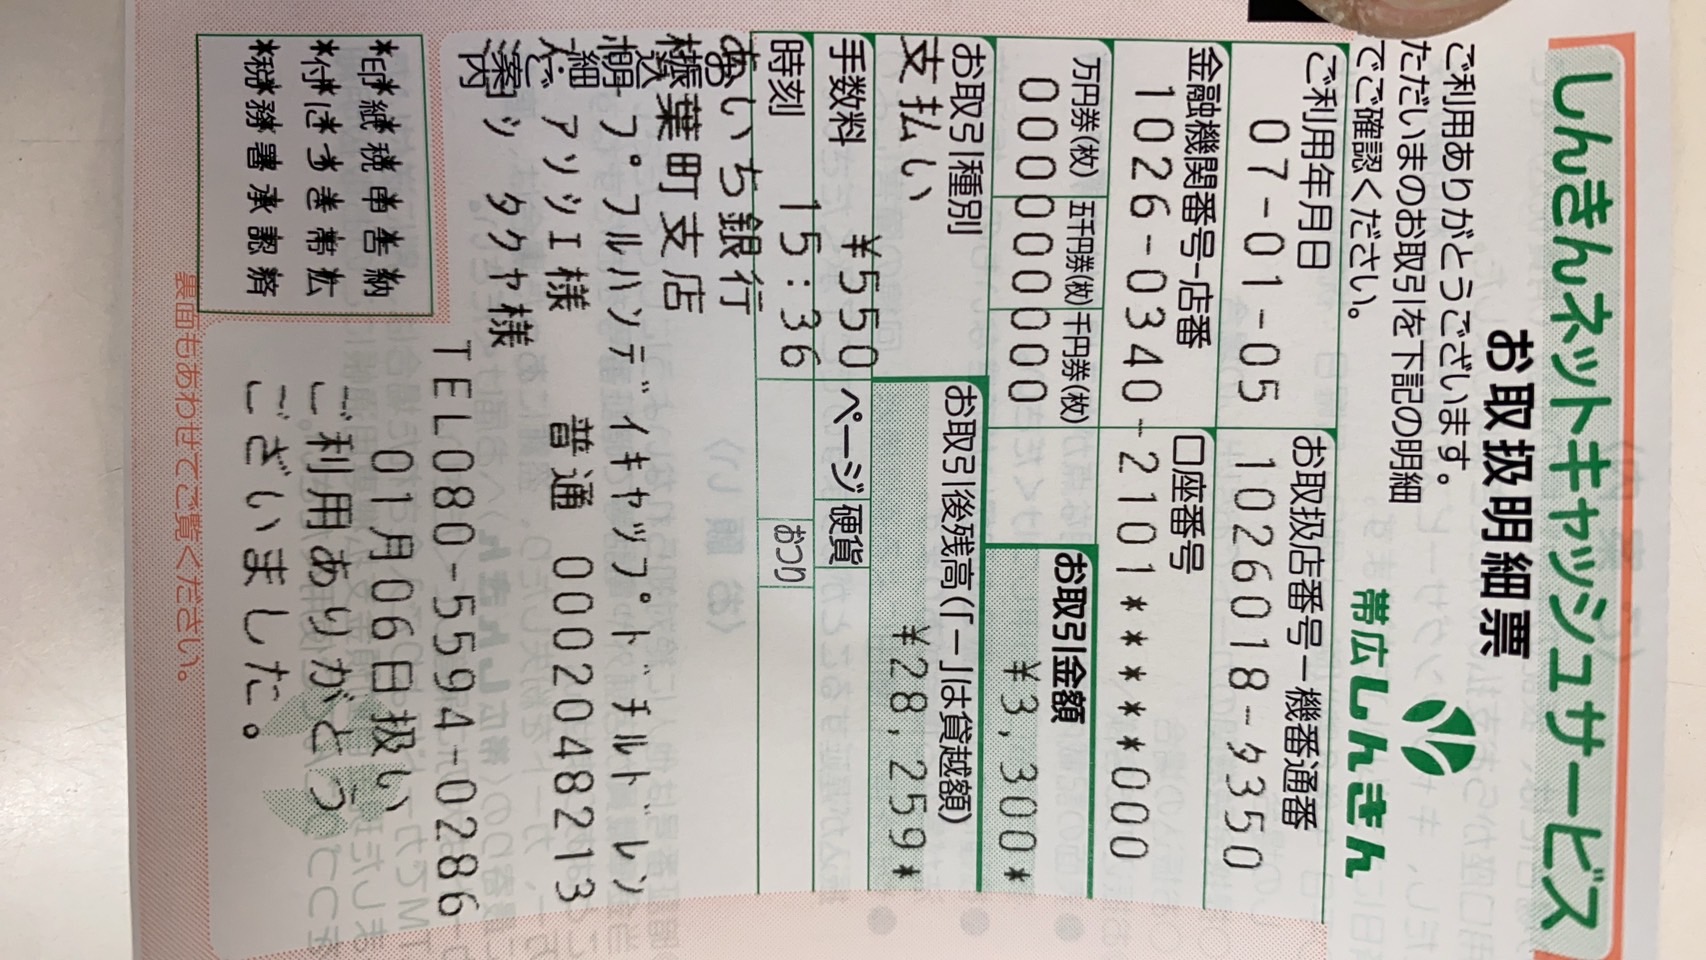 しんきんネットキャッシュサービス
お取扱明細票
ご利用ありがとうございます。
ただいまのお取引を下記の明細
でご確認ください。
帯広しんきん
ご利用年月日 お取扱店番号-機番通番
07-01-05 1026018-タ350
金融機関番号-店番 口座番号
1026-0340-2101*****000
万円券(枚) 五千円券(枚) 千円券(枚) お取引金額
000000000000 ¥3,300*
お取引種別 お取引後残高(「-」は貸越額)
支払い ¥28,259*
手数料 ¥550 ページ 硬貨
時刻 15:36 おつり
あいち銀行
椿葉町支店
プフルハンデイキャップドチルドレン
アソシエ様 普通 0002048213
シ タクヤ様
TEL080-5594-0286
01月06日扱い
ご利用ありがとう
ございました。
お振込明細ご案内
*印*紙*税*申*告*納
*付*に*つ*き*帯*広
*税*務*署*承*認*済
裏面もあわせてご覧ください。